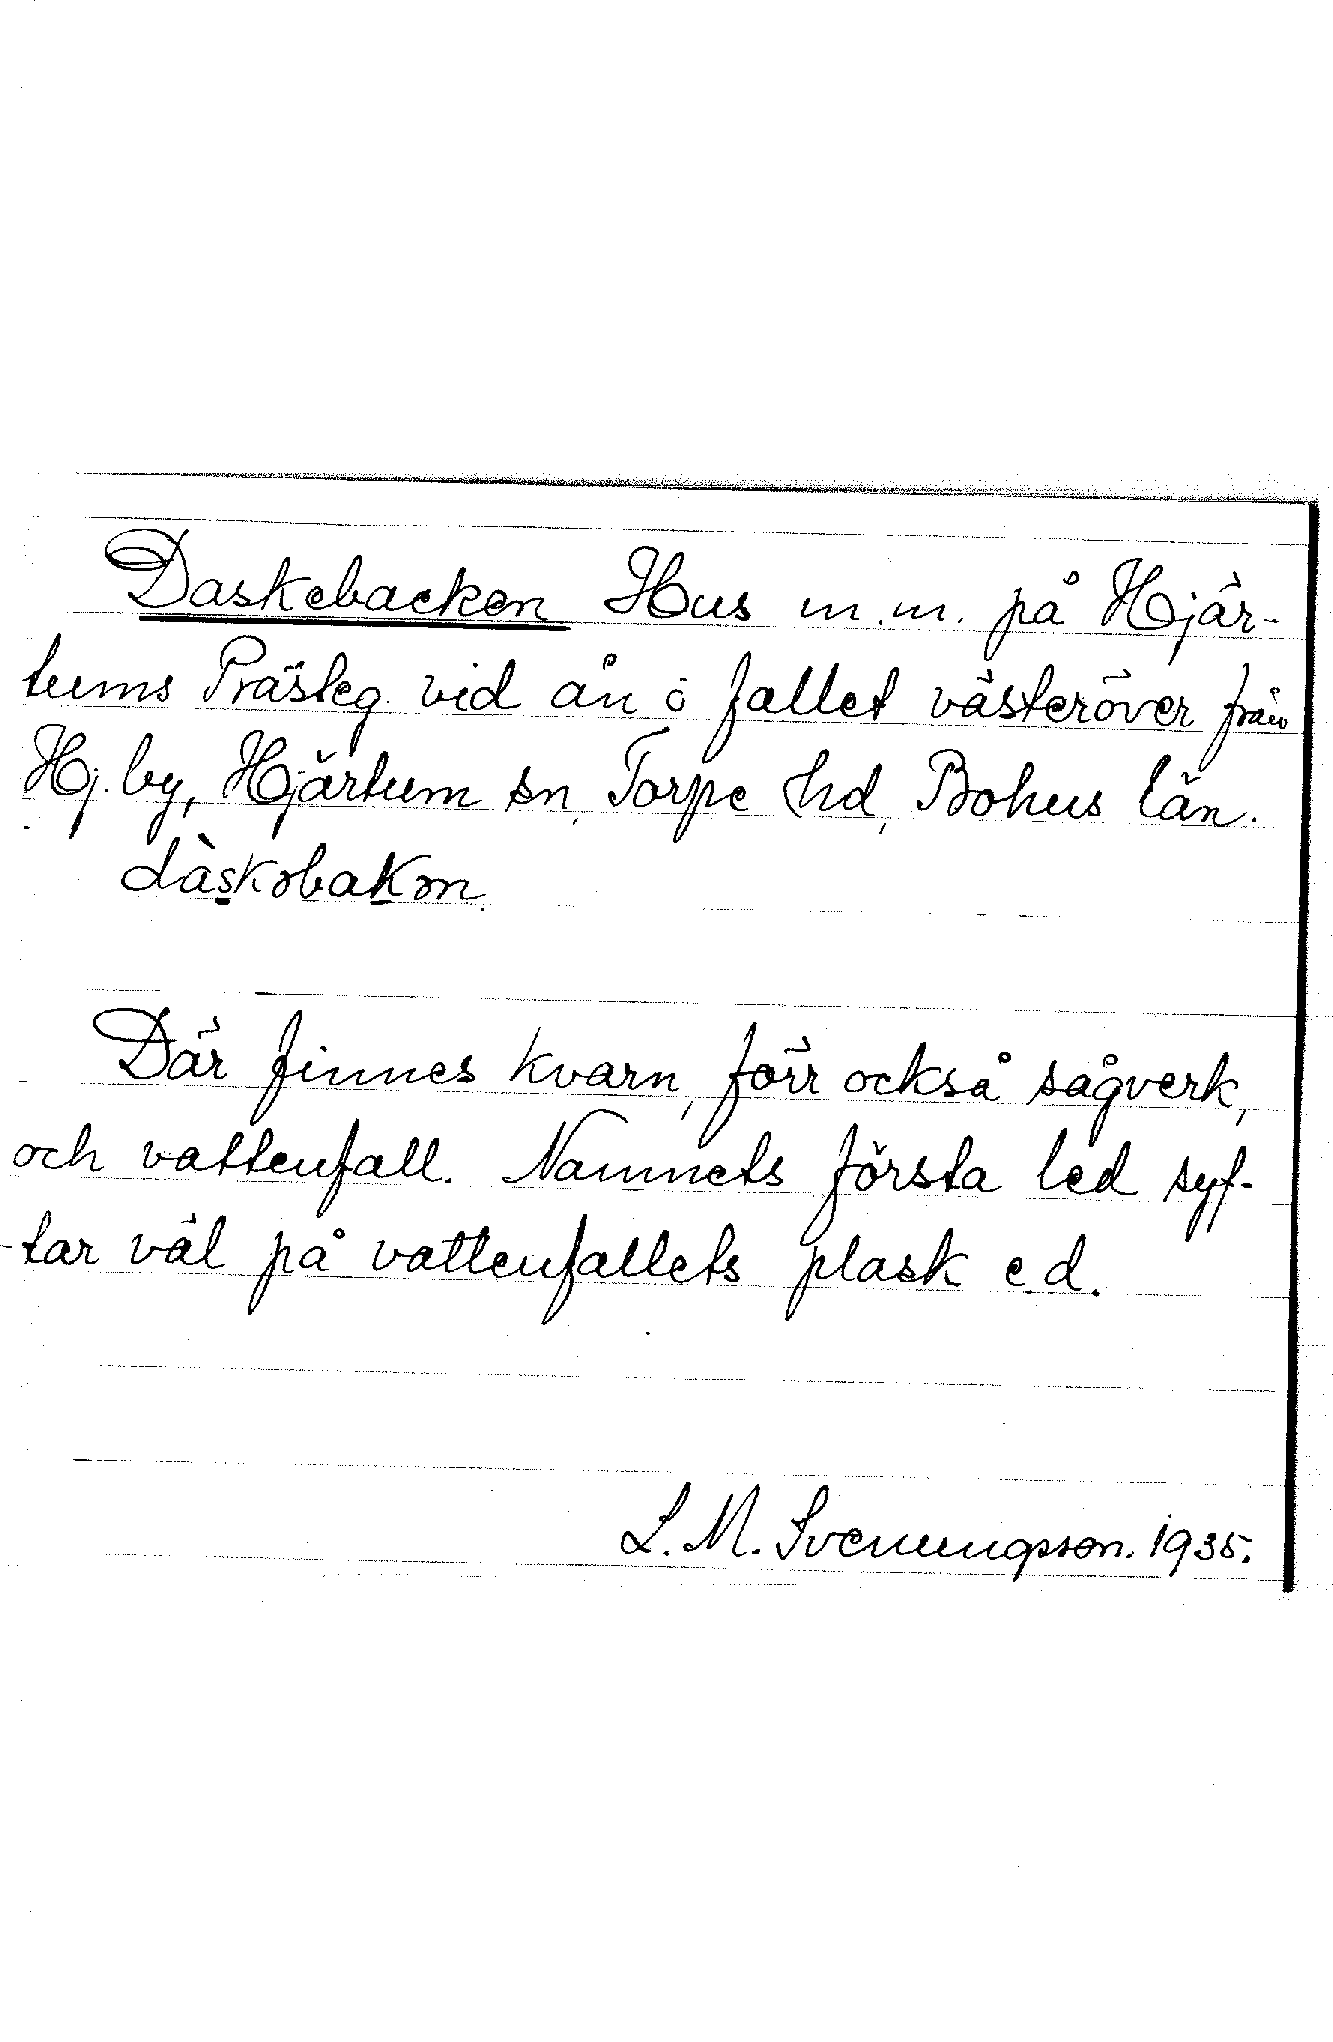 Daskebacken Hus m.m. på Hjär-
tums Prästeg. vid ån o fallet västeröver från
Hj. by, Hjärtum sn, Torpe hd, Bohus län.
dàskəbakən.
Där finnes kvarn, förr också sågverk,
och vattenfall. Namnets första led syf-
tar väl på vattenfallets plask e.d.
L. M. Svenungsson. 1935.